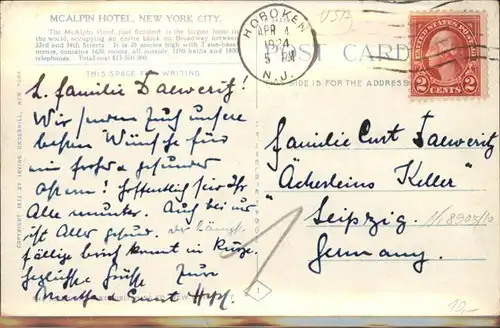 MCALPIN HOTEL, NEW YORK CITY.
The McAlpin Hotel, just finished is the largest hotel in
the world, occupying an entire block on Broadway between
33rd and 34th Streets. It is 25 stories high with
contains 1620 rooms, all outside, 1100 baths and 1600
telephones. Total cost $13,500,000
THIS SPACE FOR WRITING
POST CARD
SIDE IS FOR THE ADDRESS
HOBOKEN
APR 4
1924
5 PM
N.J.
USA
2 CENTS 2
L. Familie Taeweritz!
Wir senden Euch unsere
besten Wünsche für
ein frohes gesunder
Ostern! Hoffentlich seid Ihr
Alle munter. Auch bei uns
ist Alles gesund. Der längst
fällige Brief kommt in Kürze.
Herzliche Grüsse Eure
Martha & Ernst
Familie Curt Taeweritz
"Äckerleins Keller"
Leipzig.
Germany.
COPYRIGHT 1912 BY IRVING UNDERHILL, NEW YORK
1
10.-